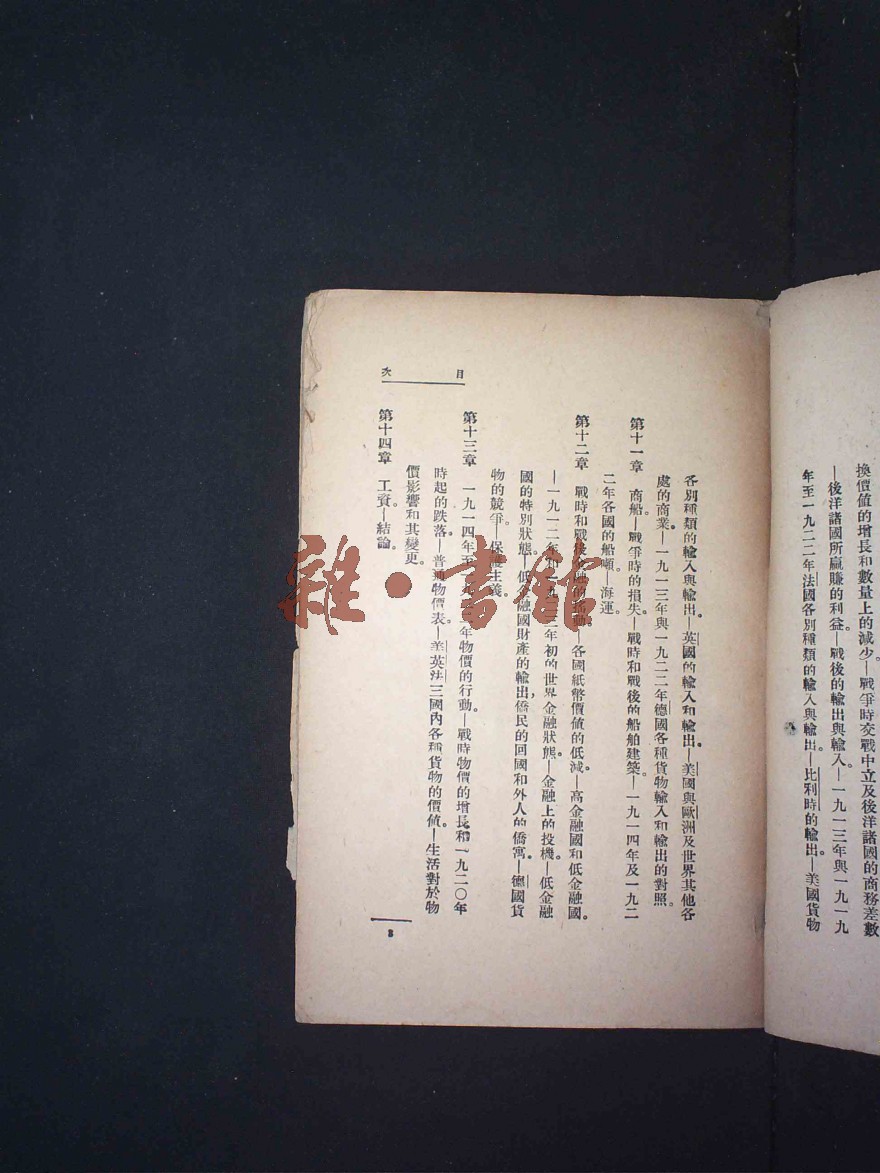 換價值的增長和數量上的減少。—戰爭時交戰中立及後洋諸國的商務差數
—後洋諸國所贏賺的利益。—戰後的輸出與輸入。—一九一三年與一九一九
年至一九二二年法國各別種類的輸入與輸出。—比利時的輸出—美國貨物
各別種類的輸入與輸出。—英國的輸入和輸出。—美國與歐洲及世界其他各
處的商業。—一九一三年與一九二二年德國各種貨物輸入和輸出的對照。
第十一章 商船。—戰爭時的損失。—戰時和戰後的船舶建築。—一九一四年及一九二
二年各國的船噸。—海運。
第十二章 戰時和戰後金融的搖動—各國紙幣價値的低減。—高金融國和低金融國。
—一九一二年和一九二三年初的世界金融狀態。—金融上的投機。—低金融
國的特別狀態—低金融國財產的輸出,僑民的回國和外人的僑寓。—德國貨
物的競爭。 保護主義。
第十三章 一九一四年至一九二二年物價的行動。—戰時物價的增長和一九二〇年
時起的跌落。—普通物價表。—美英法三國內各種貨物的價值。—生活對於物
價影響和其變更。
第十四章 工資。—結論。
目次
3
雜·書館